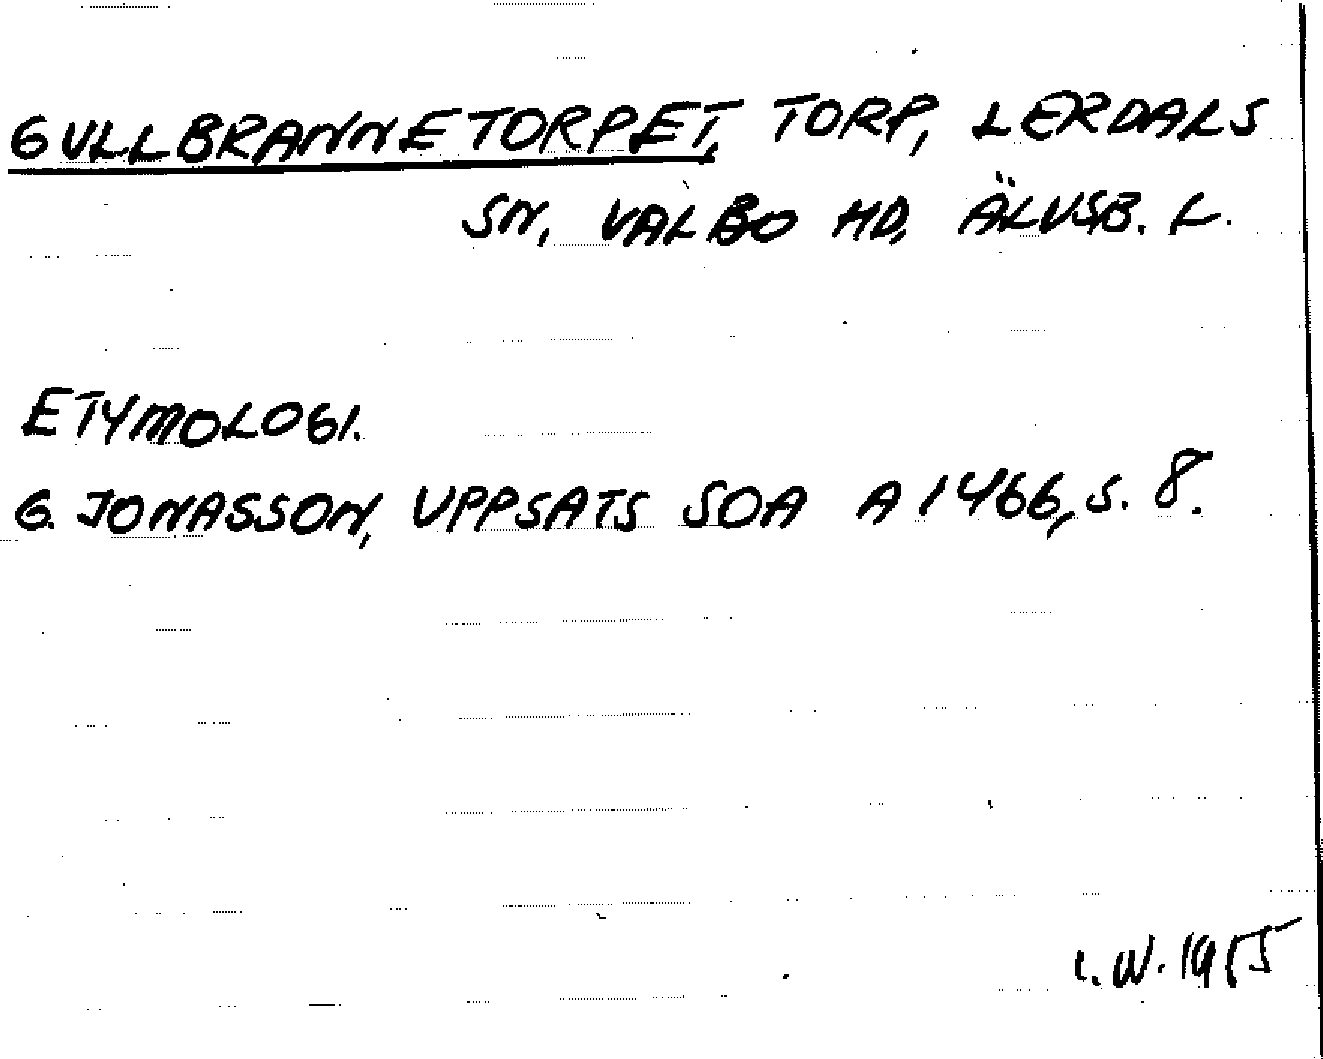 GULLBRANNETORPET, TORP, LERDALS
SN, VALBO HD, ÄLVSB. L.
ETYMOLOGI.
G. JONASSON, UPPSATS SOA A 1466, S. 8.
I.W. 1955